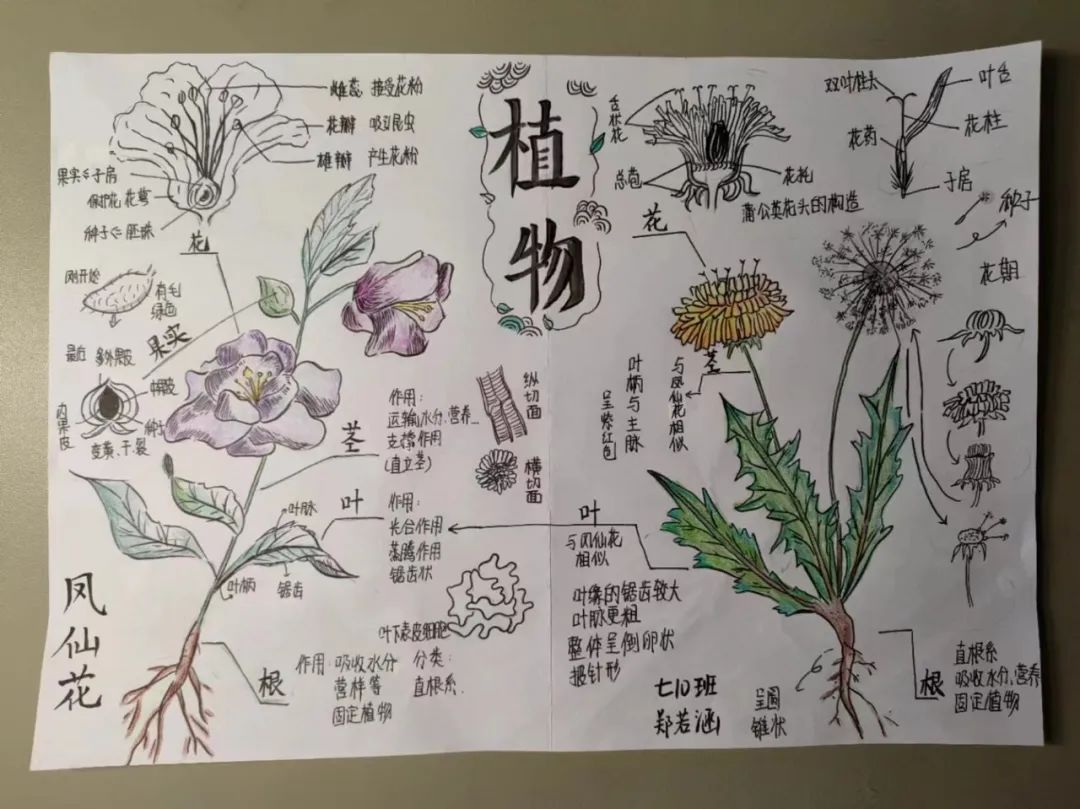 植物
雌蕊 接受花粉
花瓣 吸引昆虫
雄瓣 产生花粉
果实⇐子房
保护花 花萼
种子⇐胚珠
花
刚开始
有毛
绿色
果实
最后
外果皮
中果皮
内果皮
种子
变黄、干裂
茎
作用：
运输水分,营养
支撑作用
(直立茎)
纵切面
横切面
叶
叶脉
叶柄
锯齿
作用：
光合作用
蒸腾作用
锯齿状
叶下表皮细胞
凤仙花
根
作用：吸收水分
营样等
固定植物
分类：
直根系
舌状花
总苞
花托
蒲公英花头的构造
花
双叶柱头
叶舌
花药
花柱
子房
种子
花期
茎
与凤仙花相似
叶柄与主脉
呈紫红色
叶
与凤仙花
相似
叶缘的锯齿较大
叶脉更粗
整体呈倒卵状
披针形
七10班
郑若涵
呈圆
锥状
根
直根系
吸收水分,营养
固定植物